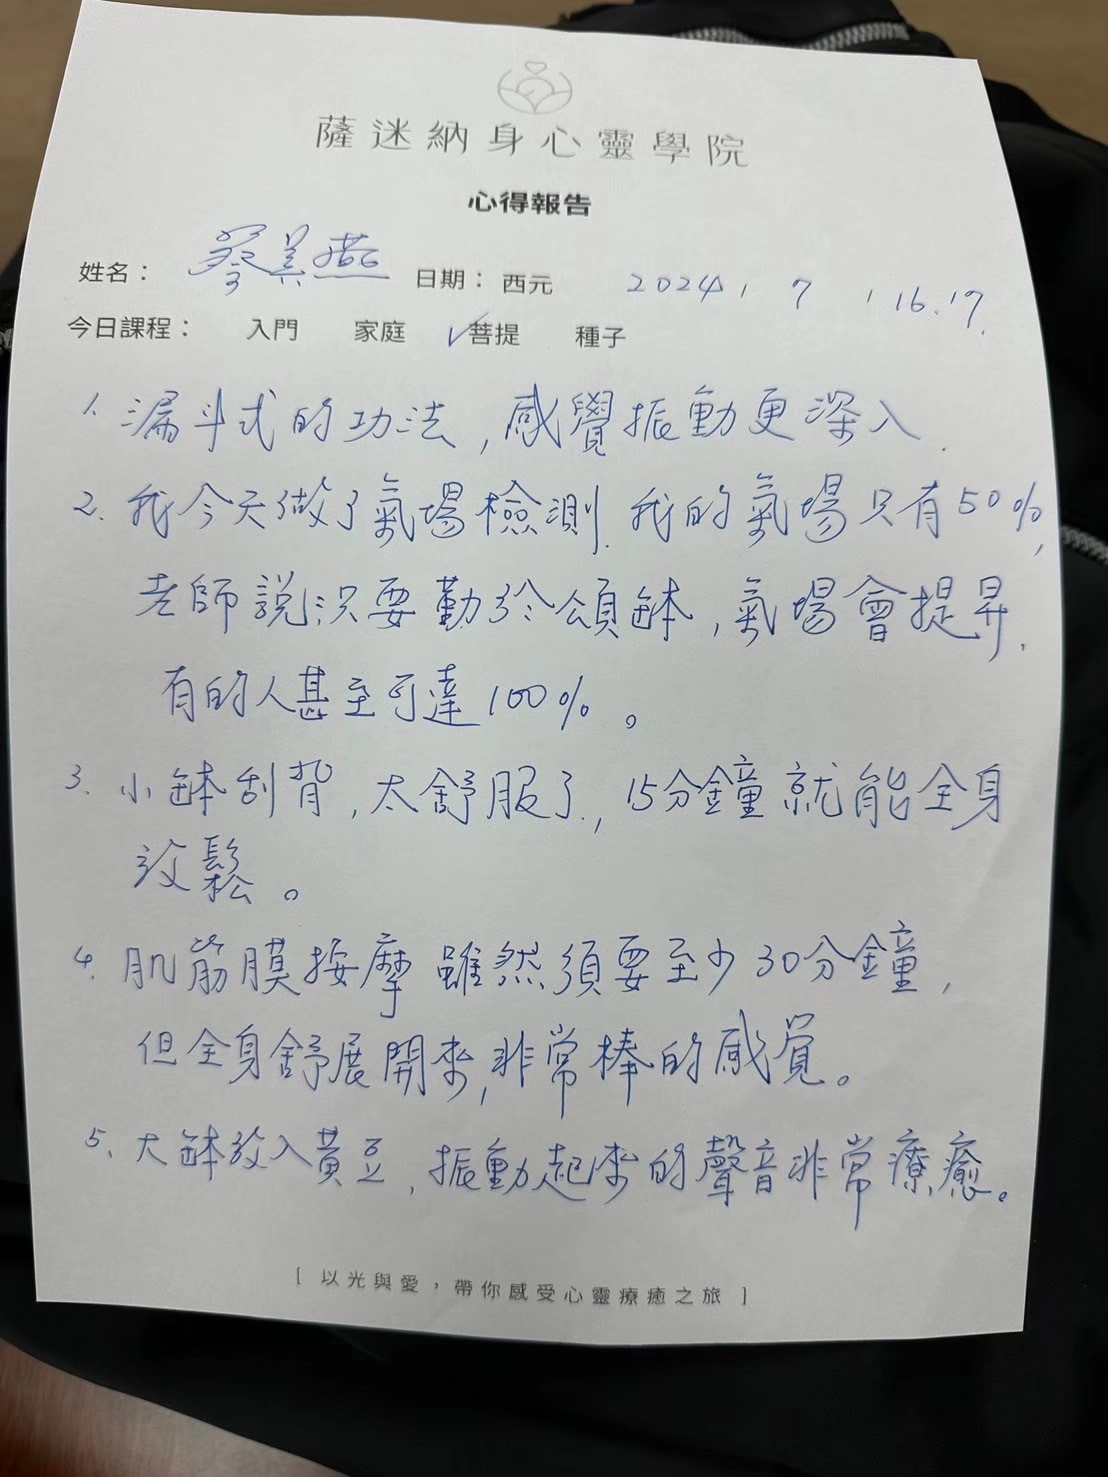 薩迷納身心靈學院
心得報告
姓名： 蔡美燕 日期：西元 2024 / 7 / 16.17.
今日課程： 入門 家庭 ✓菩提 種子
1. 漏斗式的功法，感覺振動更深入.
2. 我今天做了氣場檢測.我的氣場只有50%,
老師說:只要勤於頌缽，氣場會提昇.
有的人甚至可達100%。
3. 小缽刮背，太舒服了.，15分鐘就能全身
放鬆。
4. 肌筋膜按摩 雖然須要至少30分鐘，
但全身舒展開來,非常棒的感覺。
5. 大缽放入黃豆，振動起來的聲音非常療癒。
[ 以光與愛，帶你感受心靈療癒之旅 ]